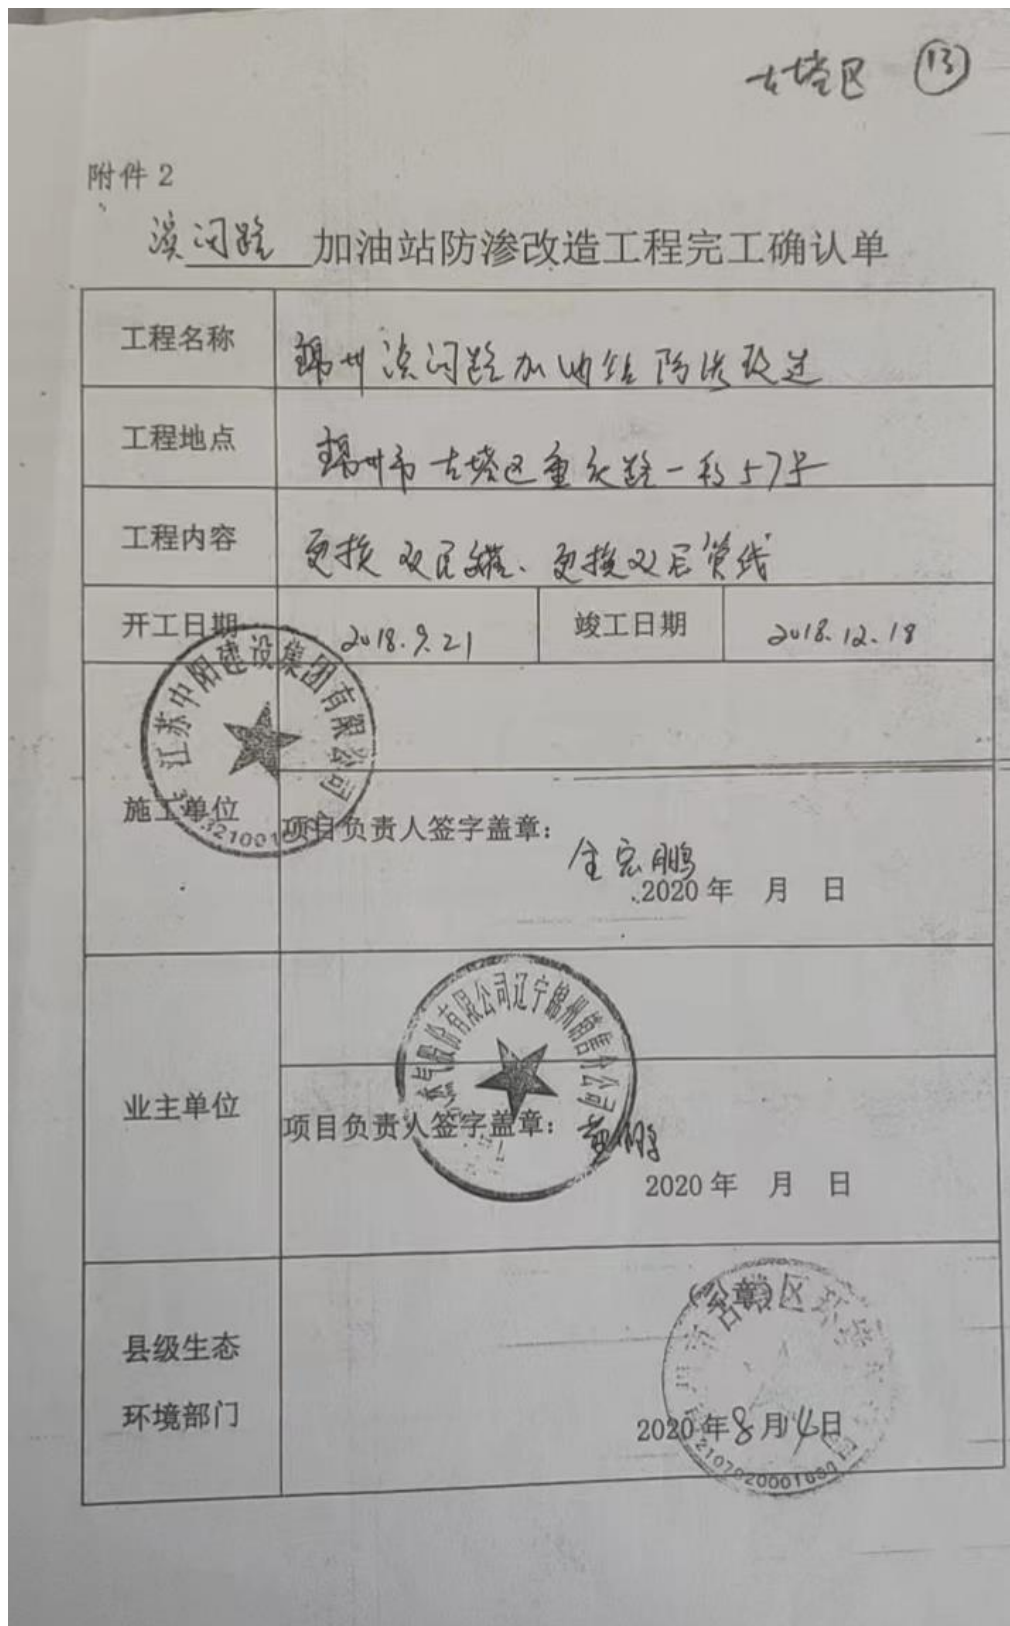 古塔区 ⑬
附件2
汉河路 加油站防渗改造工程完工确认单
工程名称 锦州汉河路加油站防渗改造
工程地点 锦州市古塔区重庆路一段57号
工程内容 更换双层罐、更换双层管线
开工日期 2018.9.21 竣工日期 2018.12.18
江苏中阳建设集团有限公司
施工单位
项目负责人签字盖章:
金宏鹏
2020年 月 日
气股份有限公司辽宁锦州销售分公司
业主单位
项目负责人签字盖章: 黄鹏
2020年 月 日
(公章)
古塔区环
县级生态
环境部门
2020年8月4日